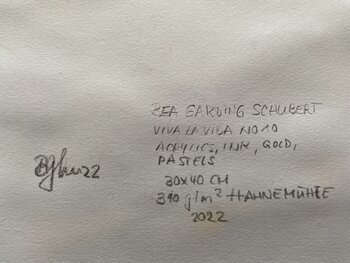 BEA GARDING SCHUBERT
VIVA LA VIDA NO 10
ACRYLICS, INK, GOLD,
PASTELS
30x40 CM
310 g/m² HAHNEMÜHLE
2022